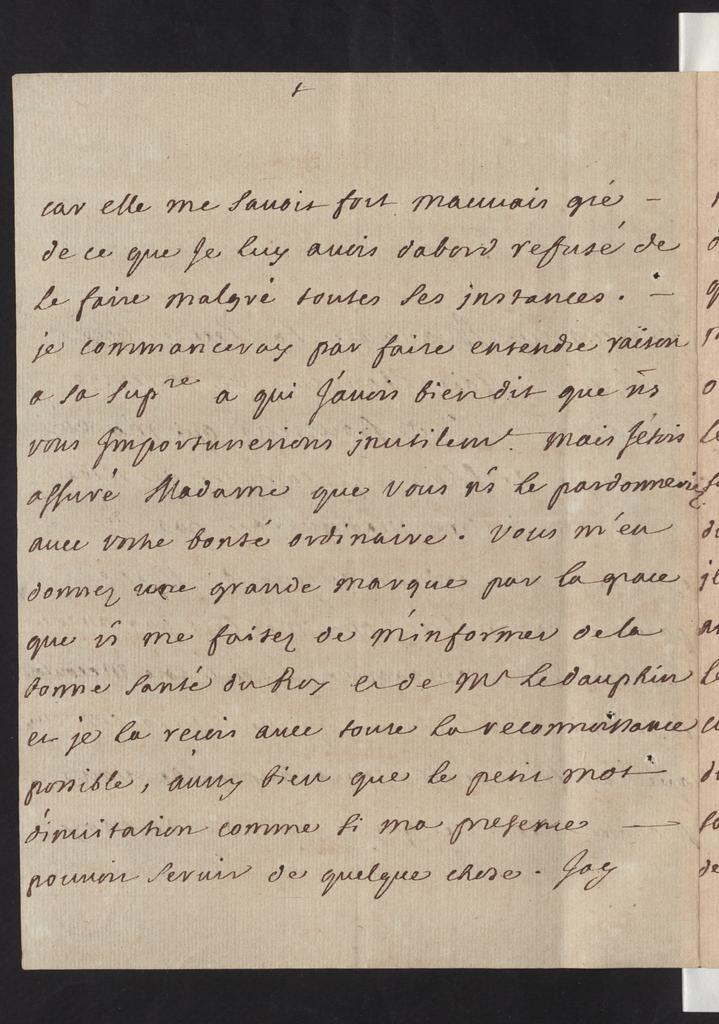 car elle me savoit fort mauvais gré –
de ce que je luy avois dabord reffusé de
le faire malgré toutes ses jnstances. –
je commanceray par faire entendre raison
a sa supre a qui j'avois bien dit que ns
vous jmportunerions jnutilemt. mais j'etois
assuré Madame que vous ns le pardonneriez
avec votre bonté ordinaire. vous m'en
donnez une grande marque par la grace
que vs me faites de m'informer de la
bonne santé du Roy et de Mr le dauphin
et je la recois avec toute la reconnoissance
possible, aussy bien que le petit mot
d'invitation comme si ma presence —
pouvoit servir de quelque chose. Jay